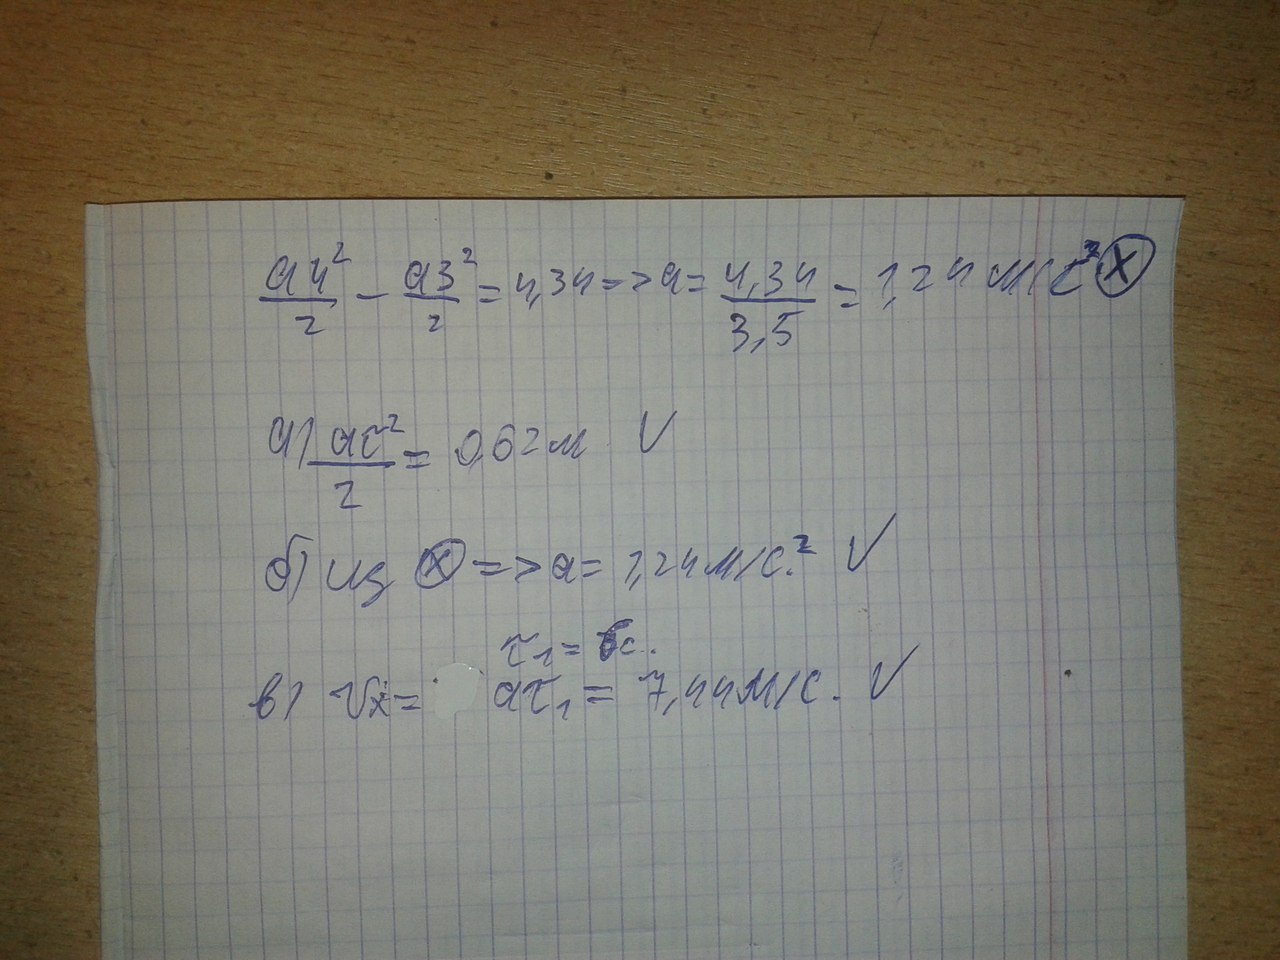 a4²/2 - a3²/2 = 4,34 => a = 4,34/3,5 = 1,24 м/с² (x)
а) aτ²/2 = 0,62 м V
б) из (x) => a = 1,24 м/с.² V
τ₁ = 6с.
в) Vx = aτ₁ = 7,44 м/с. V